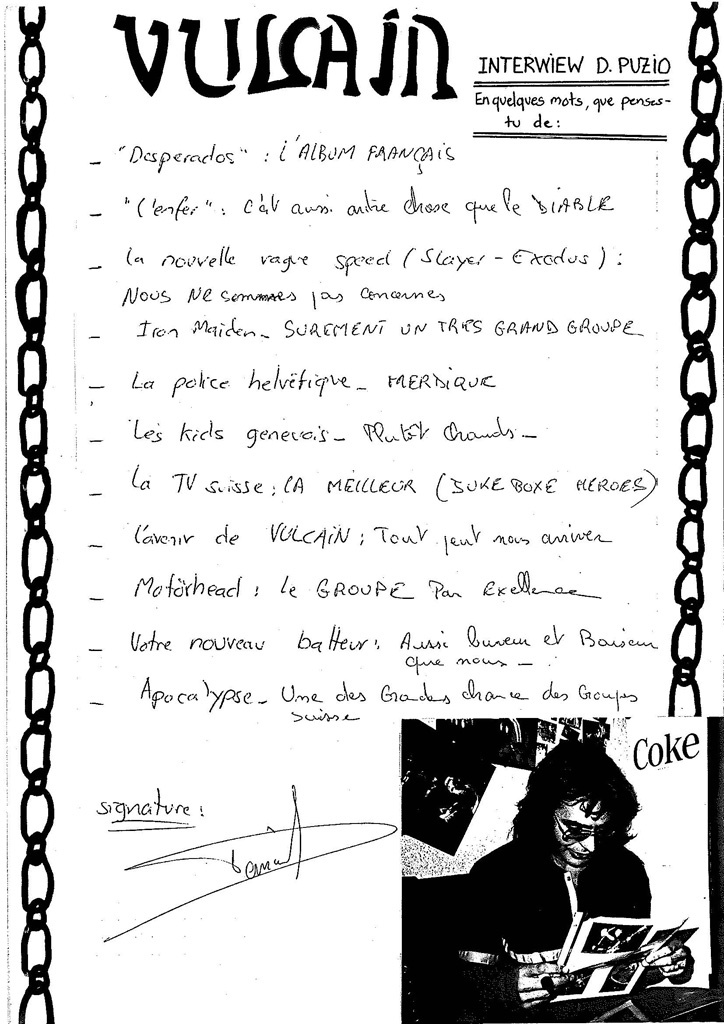 VULCAIN
INTERWIEW D. PUZIO
En quelques mots, que penses-
tu de :
- "Desperados" : L'ALBUM FRANÇAIS
- "L'enfer" : c'est aussi autre chose que le DIABLE
- La nouvelle vague speed (Slayer - Exodus) :
NOUS NE sommes pas concernes
- Iron Maiden - SUREMENT UN TRES GRAND GROUPE
- La police helvétique - MERDIQUE
- Les kids genevois - Plutôt chauds -
- La TV suisse : LA MEILLEUR (JUKE BOXE HEROES)
- L'avenir de VULCAIN : Tout peut nous arriver
- Motörhead : Le GROUPE Par Exellence
- Votre nouveau batteur : Aussi buveur et Baiseur
que nous -
- Apocalypse - Une des Grandes chance des Groups
suisse
signature :
Coke